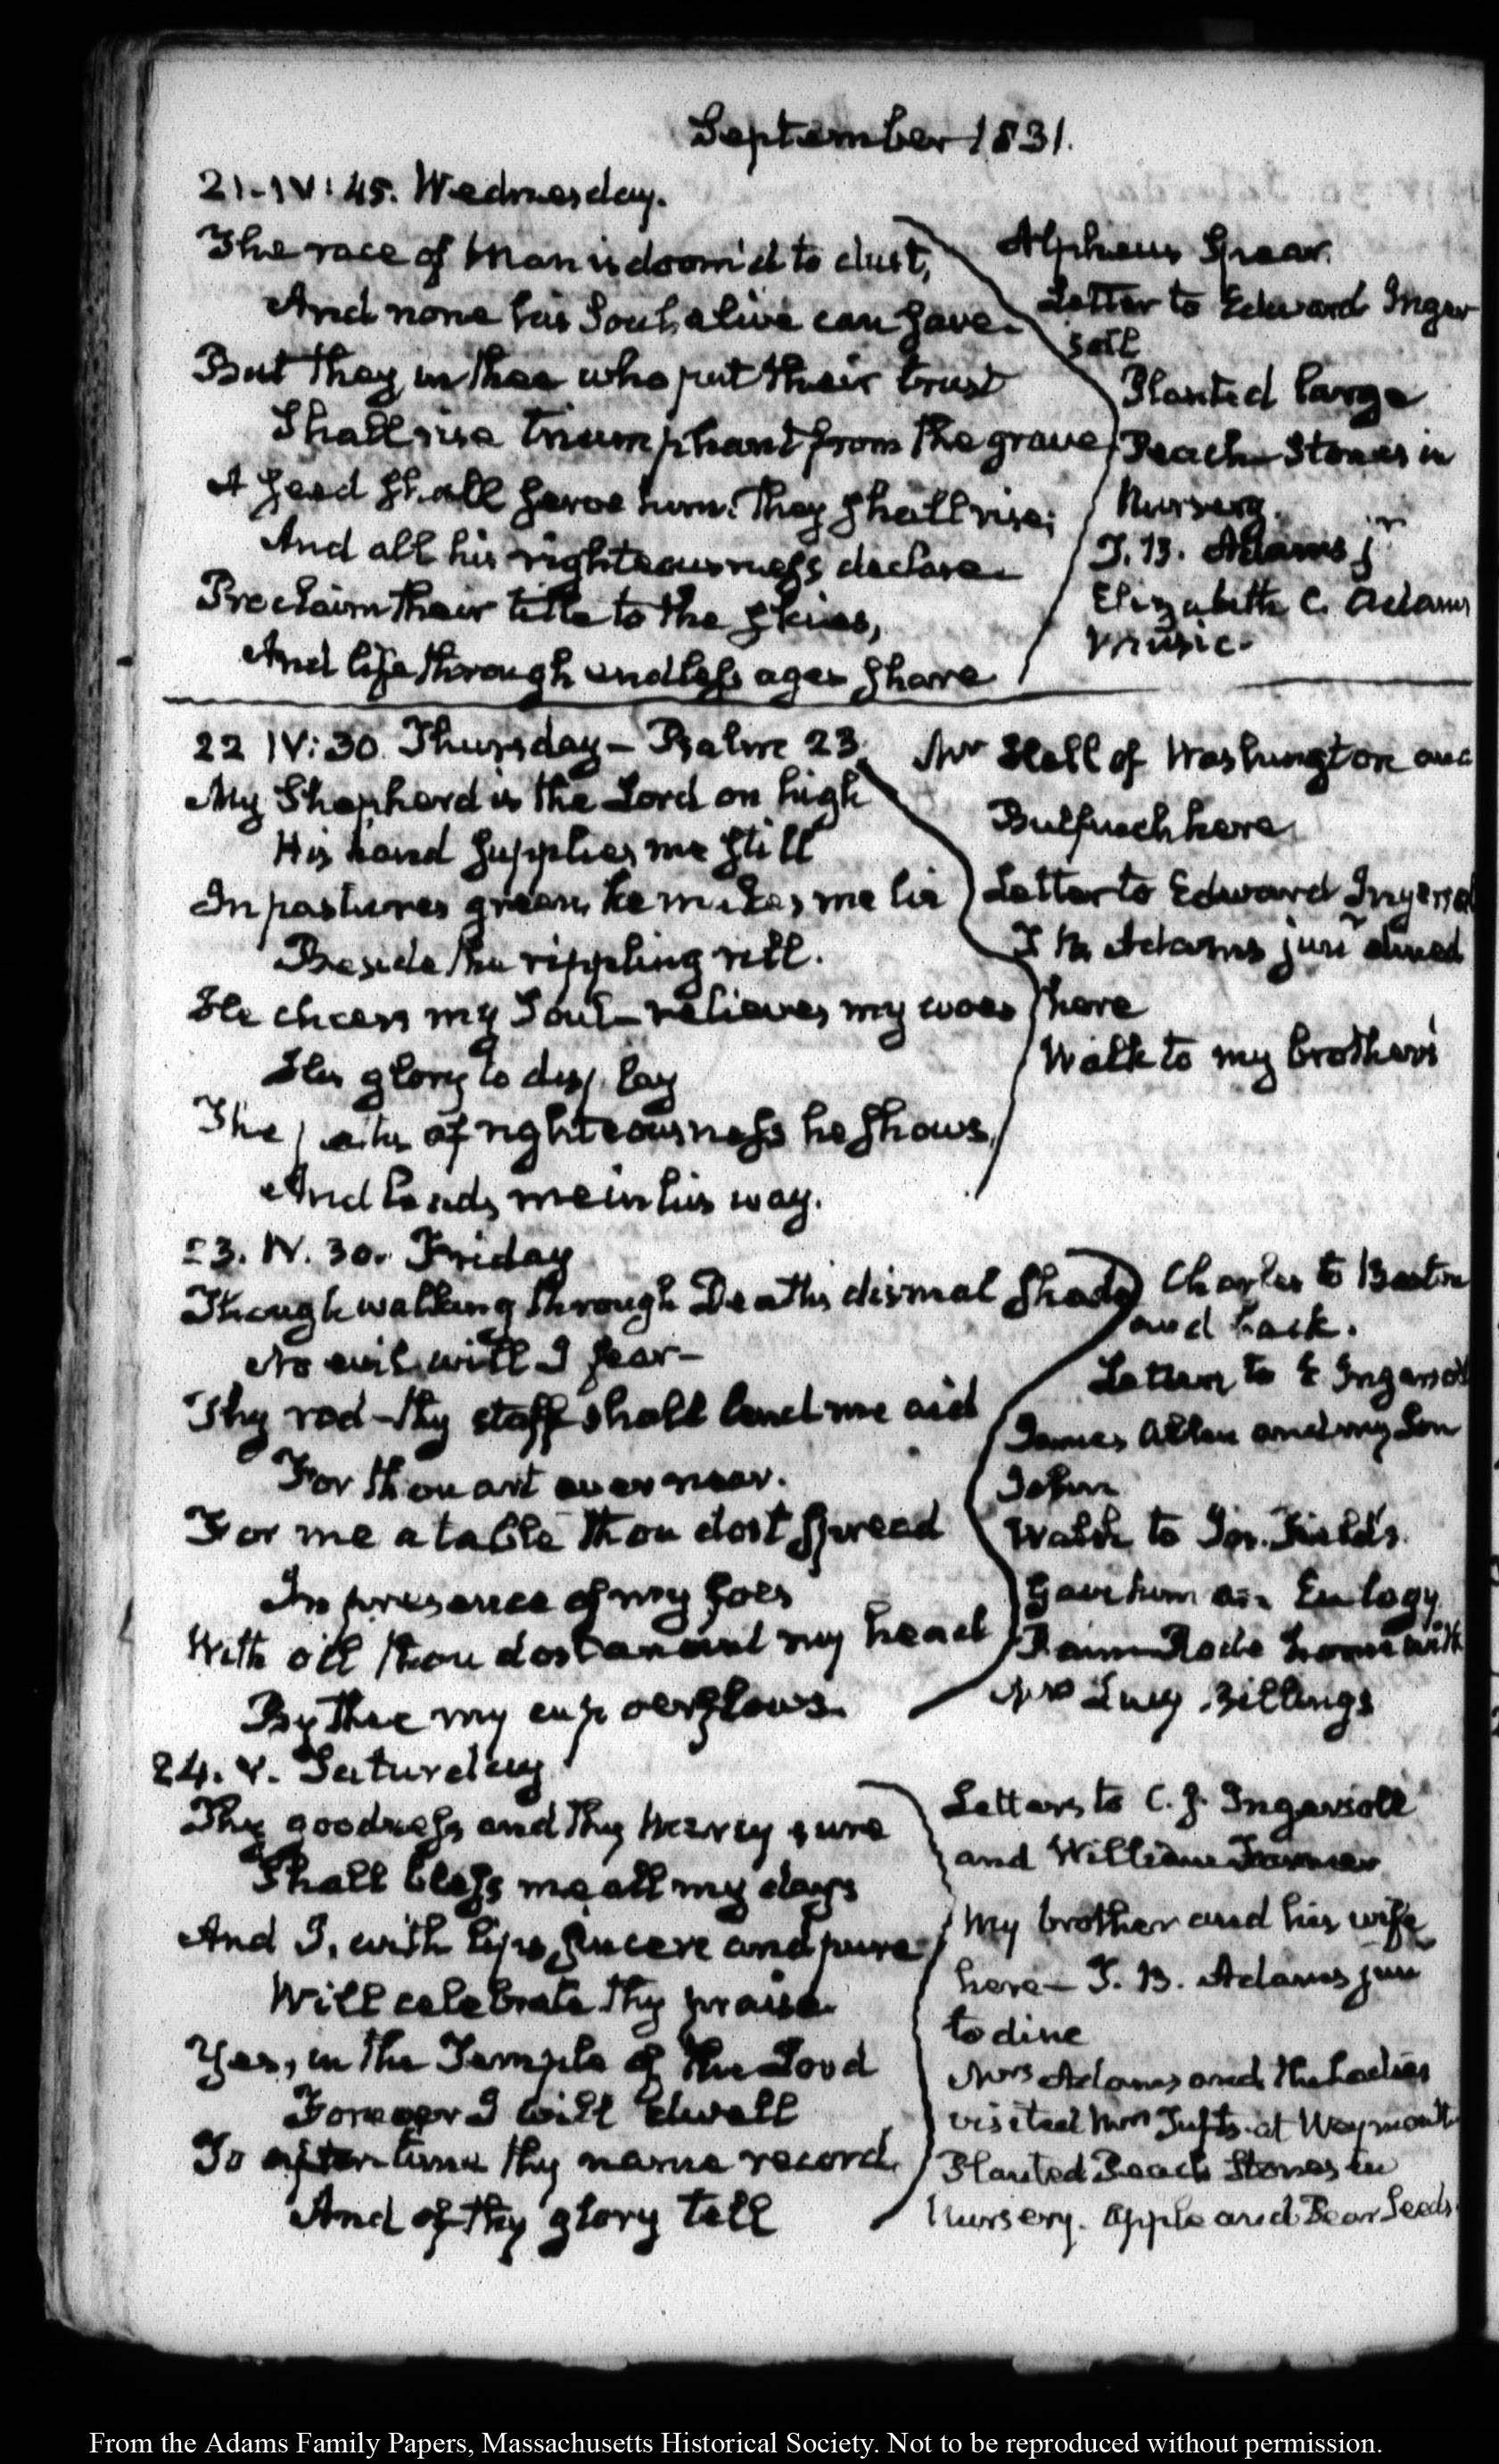 September 1831.
21. IV: 45. Wednesday.
The race of Man is doom'd to dust,
And none his Soul alive can save.
But they in thee who put their trust
Shall rise triumphant from the grave,
A seed shall serve him. They shall rise;
And all his righteousness declare
Proclaim their title to the skies,
And life through endless ages share
Alpheus Spear.
Letter to Edward Inger
soll
Planted large
Peach Stones in
Nursery.
T. B. Adams jr
Elizabeth C. Adams
music.
22 IV: 30. Thursday – Psalm 23.
My Shepherd is the Lord on high
His hand supplies me still
In pastures green, he makes me lie
Beside the rippling rill.
He cheers my Soul – relieves my woes
His glory to display
The paths of righteousness he shows,
And leads me in his way.
Mr Hall of Washington and
Bulfinch here
Letter to Edward Ingersol
T. B. Adams junr dined
here
Walk to my brother's
23. IV. 30. Friday
Though walking through Death's dismal shade
No evil will I fear –
Thy rod – thy staff shall lend me aid
For thou art ever near.
For me a table thou dost spread
In presence of my foes
With oil thou dost anoint my head
By thee my cup o'erflows.
Charles to Boston
and back.
Letter to E Ingersol
James Allen and my Son
John
Walk to Jos. Field's.
Gave him an Eulogy
Rain Rode home with
Mrs Lucy Billings
24. V. Saturday
Thy goodness and thy mercy sure
Shall bless me all my days
And I, with lips sincere and pure
Will celebrate thy praise.
Yes, in the Temple of the Lord
Forever I will dwell
To after time thy name record,
And of thy glory tell
Letters to C. J. Ingersoll
and William
My brother and his wife
here – T. B. Adams jun
to dine
Mrs Adams and the Ladies
visited Mrs Tufts at Weymouth
Planted Peach Stones in
Nursery. Apple and Pear Seeds.
From the Adams Family Papers, Massachusetts Historical Society. Not to be reproduced without permission.